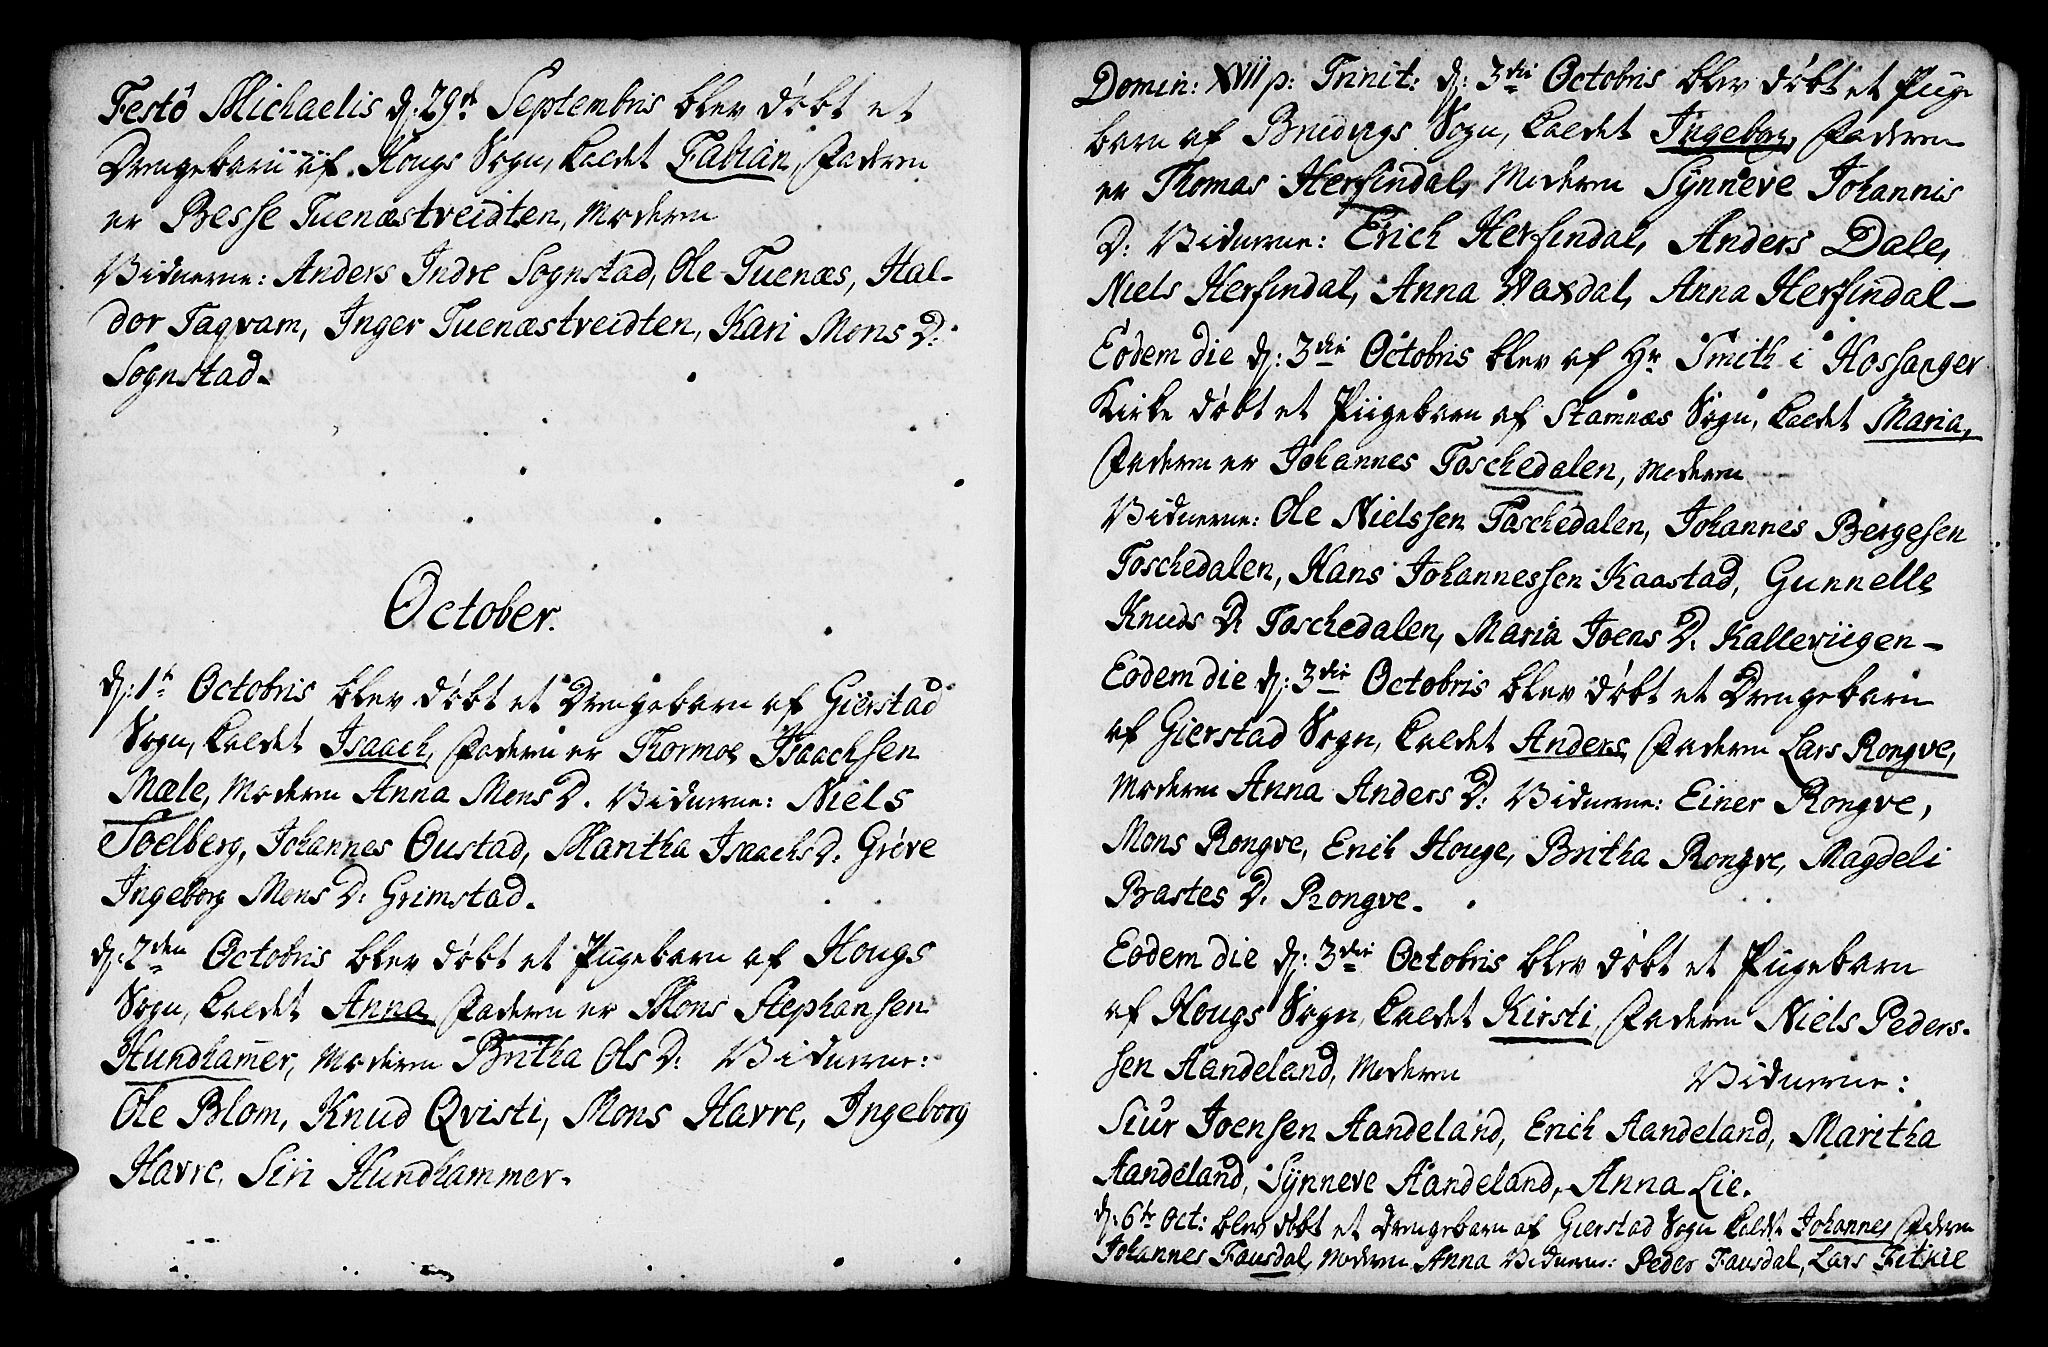 Festô Michaelis d: 29de Septembris blev døbt et
Drengebarn af Hougs Sogn, kaldet Fabian, Faderen
er Besse Tuenæstveidten, Moderen
Vidnerne: Anders Indre Sognstad, Ole Tuenæs, Hal-
dor Taqvam, Inger Tuenæstveidten, Kari Mons D:
Sognstad.
October.
d: 1te Octobris blev døbt et Drengebarn af Gierstad
Sogn, kaldet Isaach, Faderen er Thormoe Isaachsen
Mæle, Moderen Anna Mons D. Vidnerne: Niels
Soelberg, Johannes Oustad, Maritha Isaachs D: Greve
Ingeborg Mons D: Grimstad.
d: 2den Octobris blev døbt et Pigebarn af Hougs
Sogn, kaldet Anna, Faderen er Mons Stephansen
Hundhamer, Moderen Britha Ols D: Vidnerne:
Ole Blom, Knud Qvisti, Mons Havre, Ingeborg
Havre, Siri Hundhammer.
Domin: XVII p: Trinit: d: 3die Octobris blev døbt et Pige
barn af Bruvigs Sogn, kaldet Ingeborg, Faderen
er Thomas Hersindal, Moderen Synneve Johannis
D: Vidnerne: Erich Hersindal, Anders Dale,
Niels Hersindal, Anna Waxdal, Anna Hersindal-
Eodem die d: 3die Octobris blev af Hr Smith i Hossanger
Kirke døbt et Piigebarn af Stamnæs Sogn, kaldet Maria,
Faderen er Johannes Toschedalen, Moderen
Vidnerne: Ole Nielssen Taschedalen, Johannes Bergesen
Toschedalen, Hans Johannessen Kaastad, Gunnelle
Knuds D: Toschedalen, Maria Joens D. Kalleviigen-
Eodem die d: 3die Octobris blev døbt et Drengebarn
af Gierstad Sogn, kaldet Anders, Faderen Lars Rongve,
Moderen Anna Anders D: Vidnerne: Einer Rongve,
Mons Rongve, Erich Houge, Britha Rongve, Magdeli
Bastes D. Rongve.
Eodem die d: 3die Octobris blev døbt et Pigebarn
af Hougs Sogn, kaldet Kirsti, Faderen Niels Peders-
sen Aandeland, Moderen Vidnerne:
Siur Joensen Aandeland, Erich Aandeland, Maritha
Aandeland, Synneve Aandeland, Anna Lie.
d: 6te Oct: blev døbt et Drengebarn af Gierstad Sogn kaldet Johannes, Faderen
Johannes Fausdal, Moderen Anna Vidnerne: Peder Fausdal, Lars